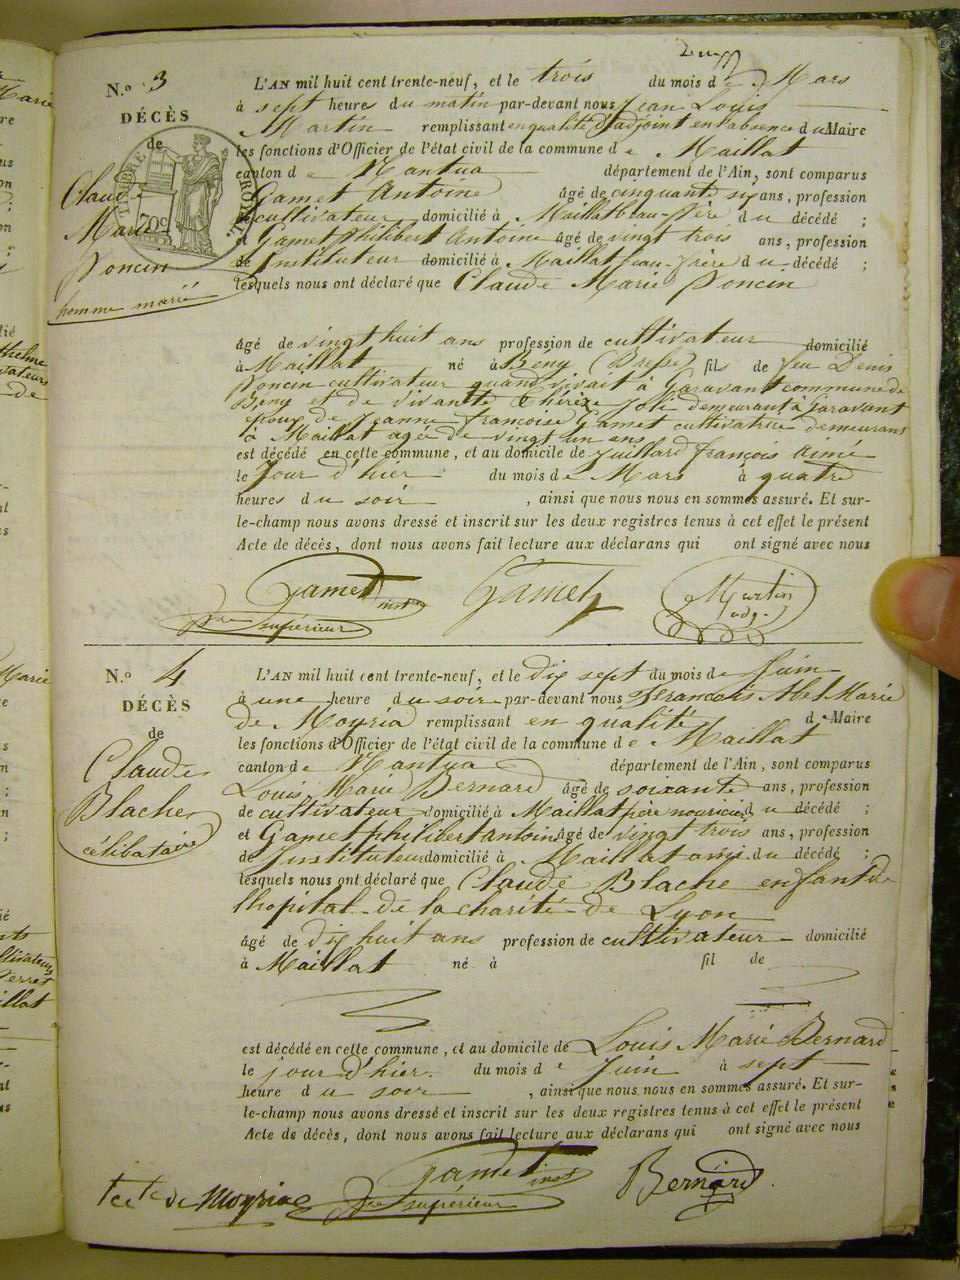 N.º 3
DÉCÈS
de
Claude
Marie
Poncin
homme marié
TIMBRE ROYAL
70c
L'AN mil huit cent trente-neuf, et le trois du mois de Mars
à sept heures du matin par-devant nous Jean Louis
Martin remplissant en qualité d'adjoint en l'absence du Maire
les fonctions d'Officier de l'état civil de la commune de Maillat
canton de Nantua département de l'Ain, sont comparus
Gamet Antoine âgé de cinquant six ans, profession
de cultivateur domicilié à Maillat beau-père du décédé ;
et Gamet Philibert Antoine âgé de vingt trois ans, profession
de Instituteur domicilié à Maillat beau-frère du décédé ;
lesquels nous ont déclaré que Claude Marie Poncin
âgé de vingt huit ans profession de cultivateur domicilié
à Maillat né à Bény (Bresse) fils de feu Denis
Poncin cultivateur quand vivait à Garavant commune de
Bény et de vivante Thérèze Joli demeurant à Garavant
époux de Jeanne françoise Gamet cultivatrice demeurant
à Maillat agée de vingt un ans
est décédé en cette commune, et au domicile de Juillard françois Aimé
le Jour d'hier du mois de Mars à quatre
heures du soir , ainsi que nous nous en sommes assuré. Et sur-
le-champ nous avons dressé et inscrit sur les deux registres tenus à cet effet le présent
Acte de décès, dont nous avons fait lecture aux déclarans qui ont signé avec nous
Gamet inst Gamet Martin
supérieur adj.
N.º 4
DÉCÈS
de
Claude
Blache
célibataire
L'AN mil huit cent trente-neuf, et le dix sept du mois de Juin
à une heure du soir par-devant nous François Abel Marie
de Moyria remplissant en qualité de Maire
les fonctions d'Officier de l'état civil de la commune de Maillat
canton de Nantua département de l'Ain, sont comparus
Louis Marie Bernard âgé de soixante ans, profession
de cultivateur domicilié à Maillat père nouricier du décédé ;
et Gamet philibert antoine âgé de vingt trois ans, profession
de Instituteur domicilié à Maillat ami du décédé ;
lesquels nous ont déclaré que Claude Blache enfant de
l'hopital de la charité de Lyon
âgé de dix huit ans profession de cultivateur domicilié
à Maillat né à fils de
est décédé en cette commune, et au domicile de Louis Marie Bernard
le jour d'hier du mois de Juin à sept
heure du soir , ainsi que nous nous en sommes assuré. Et sur-
le-champ nous avons dressé et inscrit sur les deux registres tenus à cet effet le présent
Acte de décès, dont nous avons fait lecture aux déclarans qui ont signé avec nous
de Moyria Gamet inst Bernard
supérieur